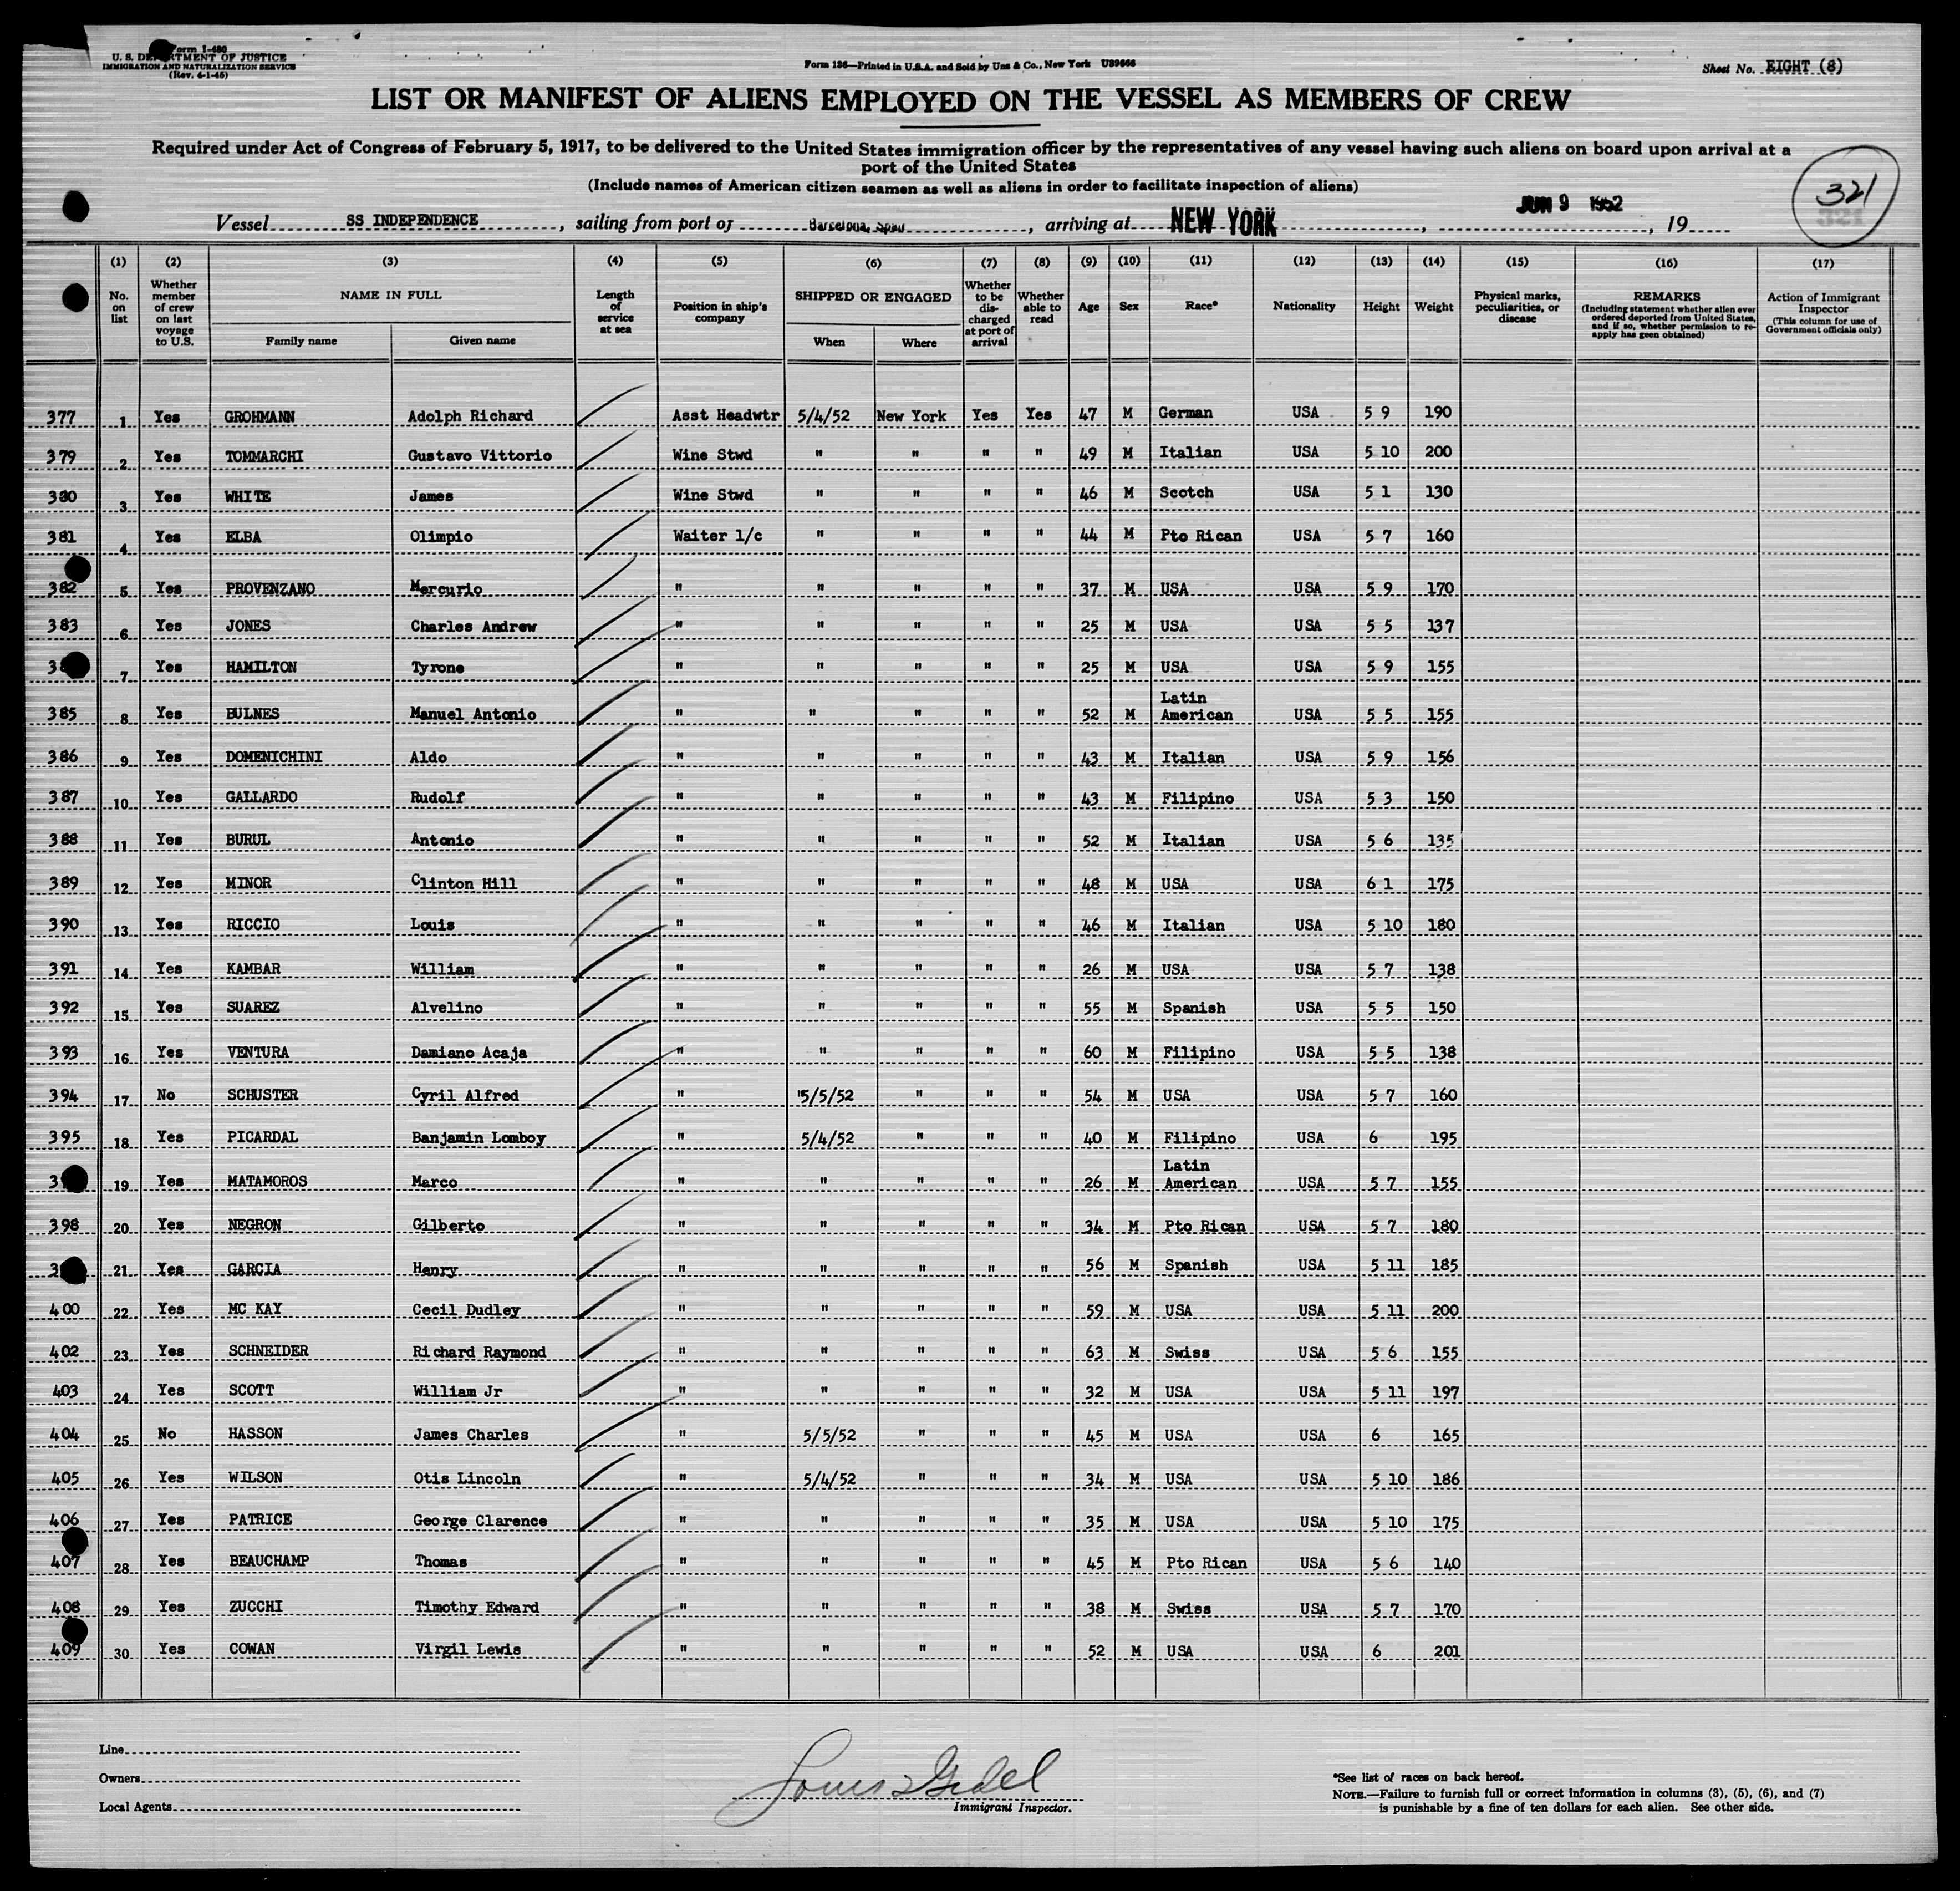 Form I-486
U. S. DEPARTMENT OF JUSTICE
IMMIGRATION AND NATURALIZATION SERVICE
(Rev. 4-1-45)
Form 186—Printed in U.S.A. and Sold by Unz & Co., New York U39666
Sheet No. EIGHT (8)
LIST OR MANIFEST OF ALIENS EMPLOYED ON THE VESSEL AS MEMBERS OF CREW
Required under Act of Congress of February 5, 1917, to be delivered to the United States immigration officer by the representatives of any vessel having such aliens on board upon arrival at a
port of the United States
(Include names of American citizen seamen as well as aliens in order to facilitate inspection of aliens)
321
321
Vessel SS INDEPENDENCE, sailing from port of Barcelona, Spain, arriving at NEW YORK, JUN 9 1952, 19
(1) No. on list
(2) Whether member of crew on last voyage to U.S.
(3) NAME IN FULL Family name Given name
(4) Length of service at sea
(5) Position in ship's company
(6) SHIPPED OR ENGAGED When Where
(7) Whether to be discharged at port of arrival
(8) Whether able to read
(9) Age
(10) Sex
(11) Race*
(12) Nationality
(13) Height
(14) Weight
(15) Physical marks, peculiarities, or disease
(16) REMARKS (Including statement whether alien ever ordered deported from United States, and if so, whether permission to re-apply has geen obtained)
(17) Action of Immigrant Inspector (This column for use of Government officials only)
377 1 Yes GROHMANN Adolph Richard Asst Headwtr 5/4/52 New York Yes Yes 47 M German USA 5 9 190
379 2 Yes TOMMARCHI Gustavo Vittorio Wine Stwd " " " " 49 M Italian USA 5 10 200
380 3 Yes WHITE James Wine Stwd " " " " 46 M Scotch USA 5 1 130
381 4 Yes ELBA Olimpio Waiter 1/c " " " " 44 M Pto Rican USA 5 7 160
382 5 Yes PROVENZANO Mercurio " " " " " 37 M USA USA 5 9 170
383 6 Yes JONES Charles Andrew " " " " " 25 M USA USA 5 5 137
7 Yes HAMILTON Tyrone " " " " " 25 M USA USA 5 9 155
385 8 Yes BULNES Manuel Antonio " " " " " 52 M Latin American USA 5 5 155
386 9 Yes DOMENICHINI Aldo " " " " " 43 M Italian USA 5 9 156
387 10 Yes GALLARDO Rudolf " " " " " 43 M Filipino USA 5 3 150
388 11 Yes BURUL Antonio " " " " " 52 M Italian USA 5 6 135
389 12 Yes MINOR Clinton Hill " " " " " 48 M USA USA 6 1 175
390 13 Yes RICCIO Louis " " " " " 46 M Italian USA 5 10 180
391 14 Yes KAMBAR William " " " " " 26 M USA USA 5 7 138
392 15 Yes SUAREZ Alvelino " " " " " 55 M Spanish USA 5 5 150
393 16 Yes VENTURA Damiano Acaja " " " " " 60 M Filipino USA 5 5 138
394 17 No SCHUSTER Cyril Alfred " 5/5/52 " " " 54 M USA USA 5 7 160
395 18 Yes PICARDAL Banjamin Lomboy " 5/4/52 " " " 40 M Filipino USA 6 195
19 Yes MATAMOROS Marco " " " " " 26 M Latin American USA 5 7 155
398 20 Yes NEGRON Gilberto " " " " " 34 M Pto Rican USA 5 7 180
21 Yes GARCIA Henry " " " " " 56 M Spanish USA 5 11 185
400 22 Yes MC KAY Cecil Dudley " " " " " 59 M USA USA 5 11 200
402 23 Yes SCHNEIDER Richard Raymond " " " " " 63 M Swiss USA 5 6 155
403 24 Yes SCOTT William Jr " " " " " 32 M USA USA 5 11 197
404 25 No HASSON James Charles " 5/5/52 " " " 45 M USA USA 6 165
405 26 Yes WILSON Otis Lincoln " 5/4/52 " " " 34 M USA USA 5 10 186
406 27 Yes PATRICE George Clarence " " " " " 35 M USA USA 5 10 175
407 28 Yes BEAUCHAMP Thomas " " " " " 45 M Pto Rican USA 5 6 140
408 29 Yes ZUCCHI Timothy Edward " " " " " 38 M Swiss USA 5 7 170
409 30 Yes COWAN Virgil Lewis " " " " " 52 M USA USA 6 201
Line
Owners
Local Agents
Immigrant Inspector.
*See list of races on back hereof.
NOTE.—Failure to furnish full or correct information in columns (3), (5), (6), and (7)
is punishable by a fine of ten dollars for each alien. See other side.